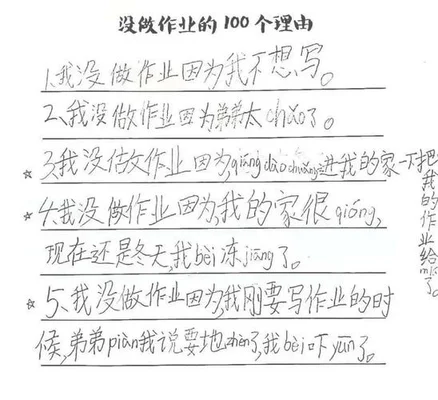 没做作业的100个理由
1.我没做作业因为我不想写。
2.我没做作业因为弟弟太chǎo了。
☆3.我没做作业因为,qiáng dào chuǎng进我的家一下把
我的作业给mí了。
☆4.我没做作业因为,我的家很qióng,
现在还是冬天,我bèi冻jiāng了。
☆5.我没做作业因为,我刚要写作业的时
候,弟弟piàn我说要地zhèn了,我bèi吓yūn了。